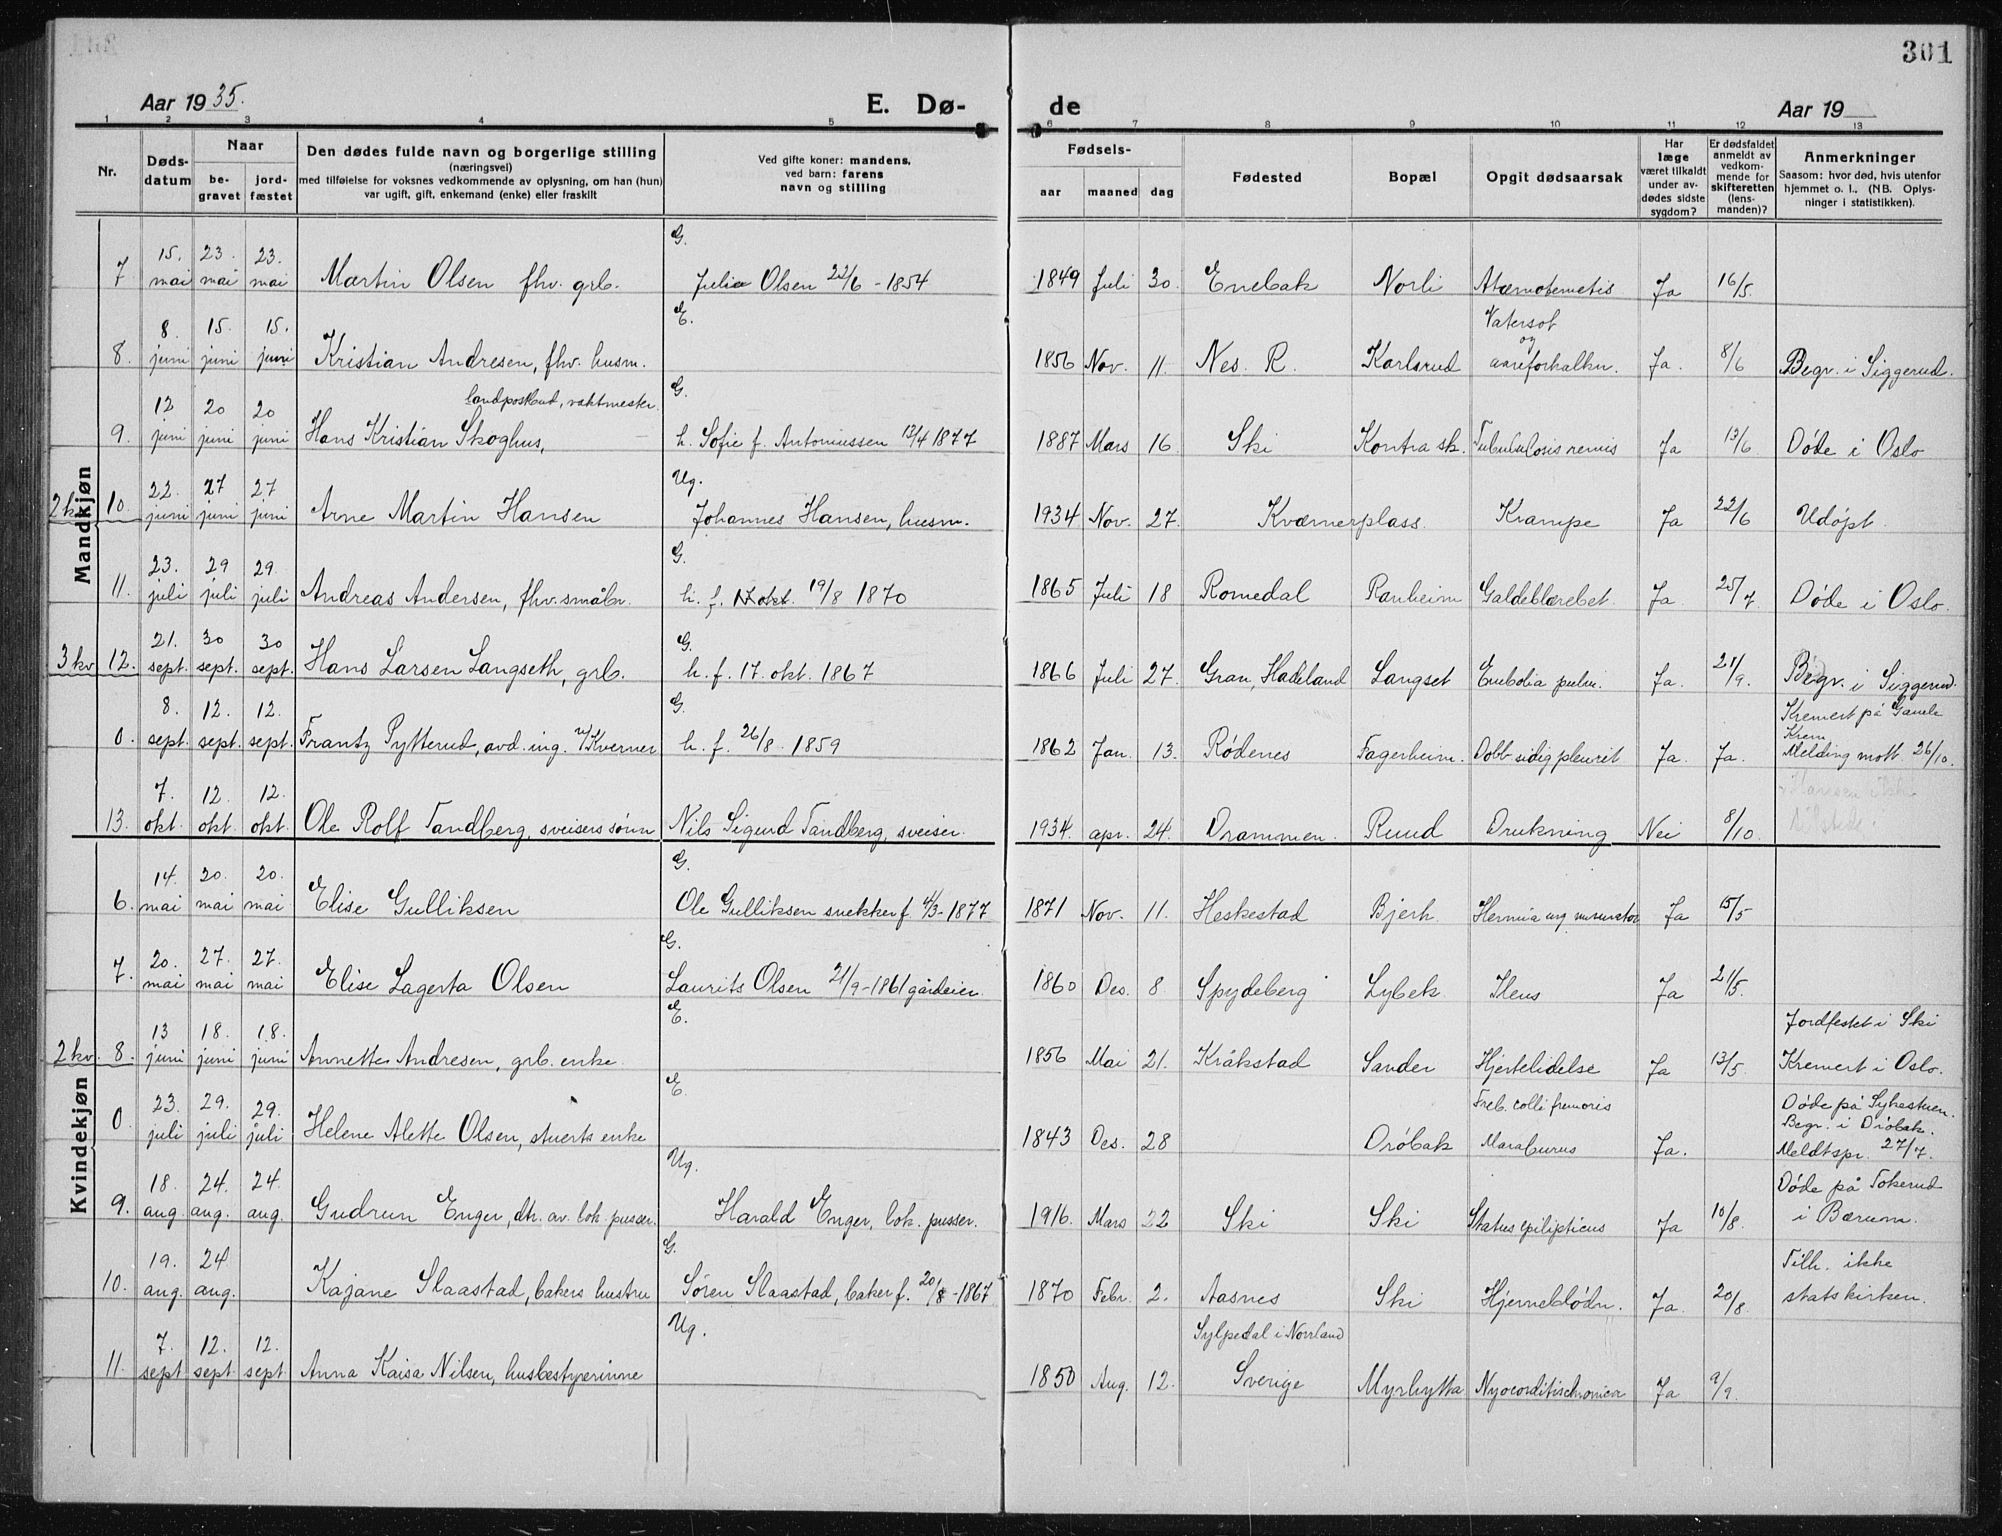 301
Aar 1935.
E. Dø-
de
Aar 19
1 2 3 4 5 6 7 8 9 10 11 12 13
Nr.
Døds-
datum
Naar
be-
gravet
jord-
fæstet
Den dødes fulde navn og borgerlige stilling
(næringsvei)
med tilføielse for voksnes vedkommende av oplysning, om han (hun)
var ugift, gift, enkemand (enke) eller fraskilt
Ved gifte koner: mandens,
ved barn: farens
navn og stilling
Fødsels-
aar maaned dag
Fødested
Bopæl
Opgit dødsaarsak
Har
læge
været tilkaldt
under av-
dødes sidste
sygdom?
Er dødsfaldet
anmeldt av
vedkom-
mende for
skifteretten
(lens-
manden)?
Anmerkninger
Saasom: hvor død, hvis utenfor
hjemmet o. l.. (NB. Oplys-
ninger i statistikken).
Mandkjøn
G.
7 15. mai 23. mai 23. mai Martin Olsen fhv. grb. Julia Olsen 22/6 - 1854 1849 Juli 30. Enebak Norli Ja 16/5.
E.
8. 8. juni 15. juni 15. juni Kristian Andresen, fhv. husm. 1856 Nov. 11. Nes. R. Karlsrud Vatersot og aareforkalkn. Ja. 8/6 Begr. i Siggerud.
landpostbud, vaktmester. G.
9. 12 juni 20 juni 20 juni Hans Kristian Skoghus, h. Sofie f. Antoniussen 13/4 1877 1887 Mars 16. Ski Kontra sk. Tuberkulosis renuis Ja 13/6. Døde i Oslo
Ug.
2 kv 10. 22. juni 27 juni 27 juni Arne Martin Hansen Johannes Hansen, husm. 1934 Nov. 27. Kværnerplass. Krampe Ja 22/6 Udøpt.
G.
11. 23. juli 29 juli 29. juli Andreas Andersen, fhv. småbr. h. f. 19/8 1870 1865 Juli 18 Romedal Ranheim Galdeblærebet. Ja. 25/7 Døde i Oslo.
G.
3 kv 12. 21. sept. 30 sept. 30 sept. Hans Larsen Langseth, grb. h. f. 17. okt. 1867 1866 Juli 27. Gran, Hadeland Langset Embolia pulm. Ja. 21/9. Begr. i Siggerud.
G.
0. 8. sept. 12. sept. 12. sept. Frantz Pytterud, avd. ing. v/Kverner h. f. 26/8 - 1859 1862 Jan. 13. Rødenes Fagerheim. Dobb. sidig pleurit Ja. Ja. Kremert på Gamle Krem. Melding mott. 26/10.
13. 7. okt. 12. okt. 12. okt. Ole Rolf Tandberg, sveisers sønn Nils Sigurd Tandberg, sveiser. 1934. apr. 24. Drammen. Ruud Drukning Nei 8/10.
Kvindekjøn
G.
6. 14. mai 20. mai 20. mai Elise Gulliksen Ole Gulliksen snekker f. 4/3 - 1877 1871 Nov. 11. Heskestad Bjerk. Ja 15/5
G.
7. 20. mai 27. mai 27. mai Elise Lagerta Olsen Laurits Olsen 21/9 - 1861 gårdeier. 1860 Des. 8. Spydeberg Lybek. Ileus Ja 21/5.
E.
2 kv. 8. 13 juni 18. juni 18. juni Annette Andresen, grb. enke. 1856 Mai 21. Kråkstad Sander Hjertelidelse Ja 13/5. Jordfestet i Ski Kremert i Oslo.
E.
0. 23. juli 29. juli 29. juli Helene Alette Olsen, stuerts enke 1843 Des. 28 Drøbak Freb. colli fremoris Ja. Døde på Sykestuen. Begr. i Drøbak. Meldtspr. 27/7.
Ug.
9. 18. aug. 24. aug. 24. aug. Gudrun Enger, dtr. av lok. pusser. Harald Enger, lok. pusser. 1916. Mars 22 Ski Ski Status epilipticus Ja 10/8. Døde på Tokerud i Bærum.
G.
10. 19. aug. 24 aug. Kajane Slaastad, bakers hustru Søren Slaastad, baker f. 20/8 - 1867 1870 Febr. 2. Aasnes Ski Hjerneblødn. Ja. 20/8. Tilh. ikke statskirken.
Ug.
11. 7. sept 12. sept. 12. sept. Anna Kaisa Nilsen, husbestyrerinne 1850 Aug. 12. Sylpedal i Norrland Sverige Myrhytta Ja 9/9.